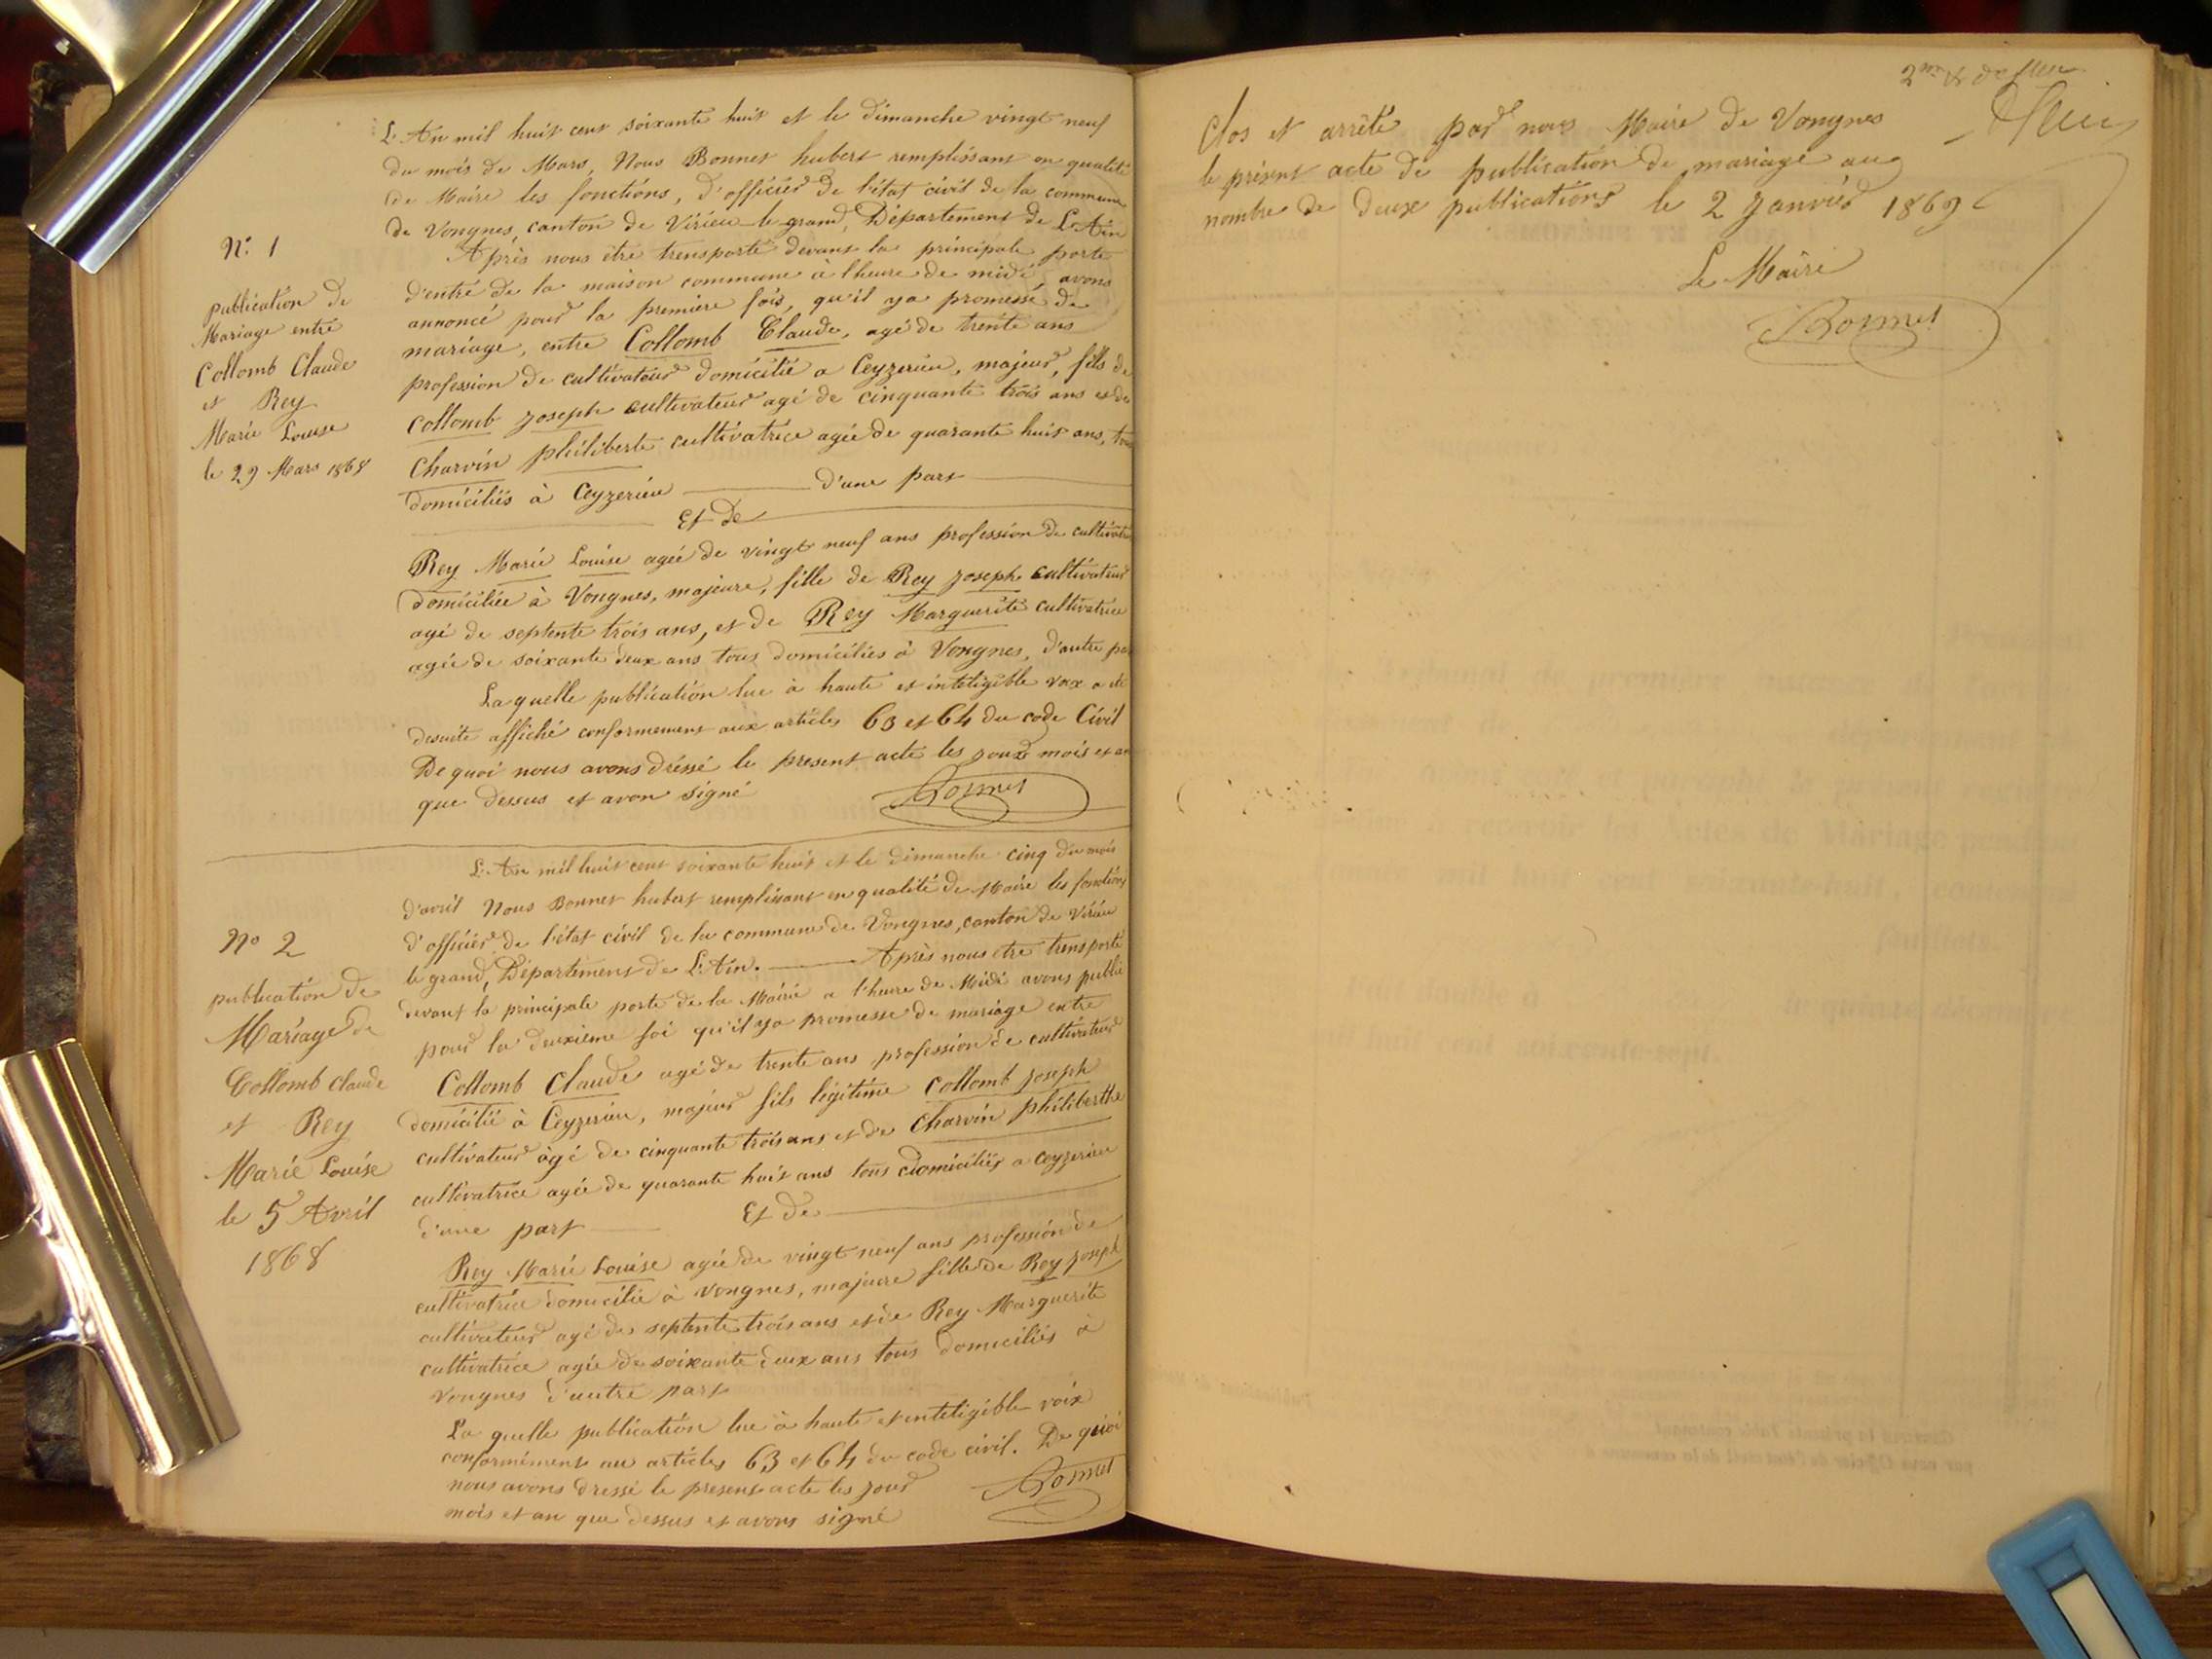 L'An mil huit cent soixante huit et le dimanche vingt neuf
du mois de Mars, Nous Bonnet hubert remplissant en qualité
de Maire les fonctions, d'officier de l'état civil de la commune
de Vongnes, canton de Virieu le grand, Département de L'Ain
Après nous être transporté devant la principale porte
d'entré de la maison commune à l'heure de midi, avons
annoncé pour la première fois, qu'il ya promesse de
mariage, entre Collomb Claude, agé de trente ans
profession de cultivateur domicilié a Ceyzerieu, majeur, fils de
Collomb Joseph cultivateur agé de cinquante trois ans et de
Charvin philiberte cultivatrice agée de quarante huit ans, tous
domiciliés à Ceyzerieu d'une part
Et de
Rey Marie Louise agée de vingt neuf ans profession de cultivatri
domiciliée à Vongnes, majeure, fille de Rey Joseph cultivateur
agé de septente trois ans, et de Rey Marguerite cultivatrice
agée de soixante deux ans tous domiciliés à Vongnes, d'autre pa
Laquelle publication lue à haute et inteligible voix a été
desuite affiché conformement aux articles 63 et 64 du code Civil
De quoi nous avons dréssé le present acte les jour mois et an
que dessus et avon signé
Bonnet
N° 1
publication de
Mariage entre
Collomb Claude
et Rey
Marie Louise
le 29 Mars 1868
L'An mil huit cent soixante huit et le dimanche cinq du mois
d'avril Nous Bonnet hubert remplissant en qualité de Maire les fonctions
d'officier de l'état civil de la commune de Vongnes, canton de Virieu
le grand, Département de L'Ain. Après nous être transporté
devant la principale porte de la Mairie a l'heure de Midi avons publié
pour la deuxieme foi qu'il ya promesse de mariage entre
Collomb Claude agé de trente ans profession de cultivateur
domicilié à Ceyzerieu, majeur fils légitime Collomb Joseph
cultivateur âgé de cinquante trois ans et de Charvin philiberthe
cultivatrice agée de quarante huit ans tous domiciliés a Ceyzerieu
d'une part Et de
Rey Marie Louise agée de vingt neuf ans profession de
cultivatrice domicilié à Vongnes, majeure fille de Rey Joseph
cultivateur agé de septente trois ans et de Rey Marguerite
cultivatrice agée de soixante deux ans tous domiciliés à
Vongnes d'autre part
La quelle publication lue à haute et inteligible voix
conformément au articles 63 et 64 du code civil. De quoi
nous avons dressé le present acte les jour
mois et an que dessus et avons signé
Bonnet
N° 2
publication de
Mariage de
Collomb Claude
et Rey
Marie Louise
le 5 Avril
1868
Clos et arrêté par nous Maire de Vongnes
le présent acte de publication de mariage au
nombre de deux publications le 2 Janvier 1869
Le Maire
Bonnet